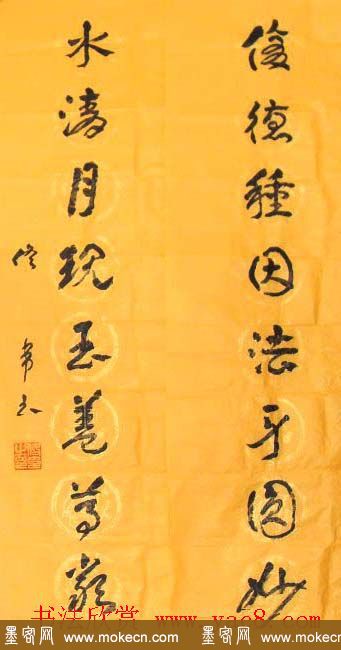 修德種因法身圓妙
水清月現至善尊嚴
书法欣赏 www.yac8.com
墨客网 www.mokecn.com 墨客网 www.mokecn.com